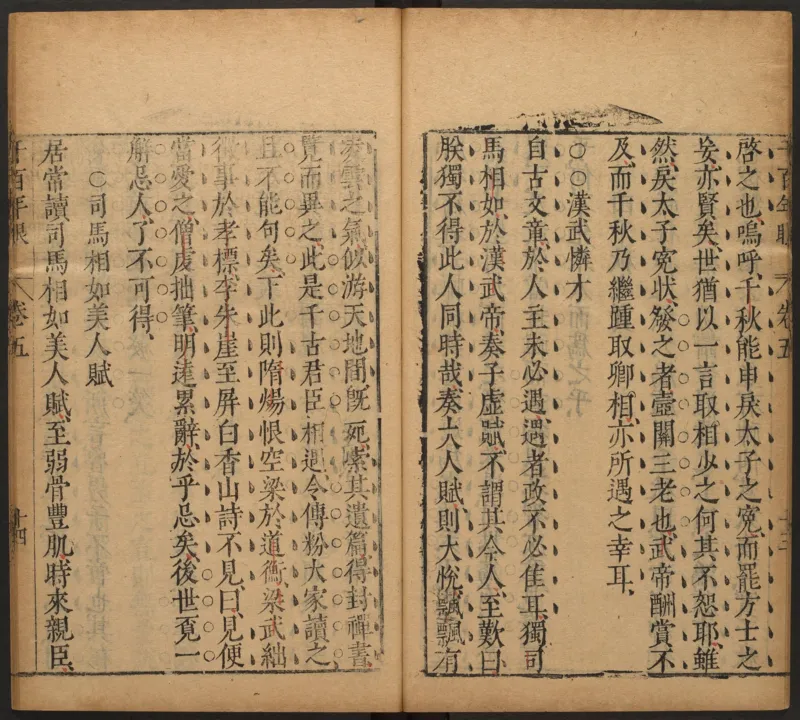 啓之也嗚呼千秋能申戾太子之冤而罷方士之
妄亦賢矣世猶以一言取相少之何其不恕耶雖
然戾太子冤狀發之者壺關三老也武帝酬賞不
及而千秋乃繼踵取卿相亦所遇之幸耳
○○漢武憐才
自古文章於人主未必遇遇者政不必佳耳獨司
馬相如於漢武帝奏子虛賦不謂其今人至歎曰
朕獨不得此人同時哉奏大人賦則大悅飄飄有
千百年眼 卷五
凌雲之氣似游天地間旣死索其遺篇得封禪書
覽而異之此是千古君臣相遇令傅粉大家讀之
且不能句矣下此則隋煬恨空梁於道衡梁武絀
徵事於孝標李朱崖至屏白香山詩不見曰見便
當愛之僧虔拙筆明遠累辭於乎忌矣後世覓一
解忌人了不可得
○司馬相如美人賦
居常讀司馬相如美人賦至弱骨豐肌時來親臣
千百年眼 卷五 十四